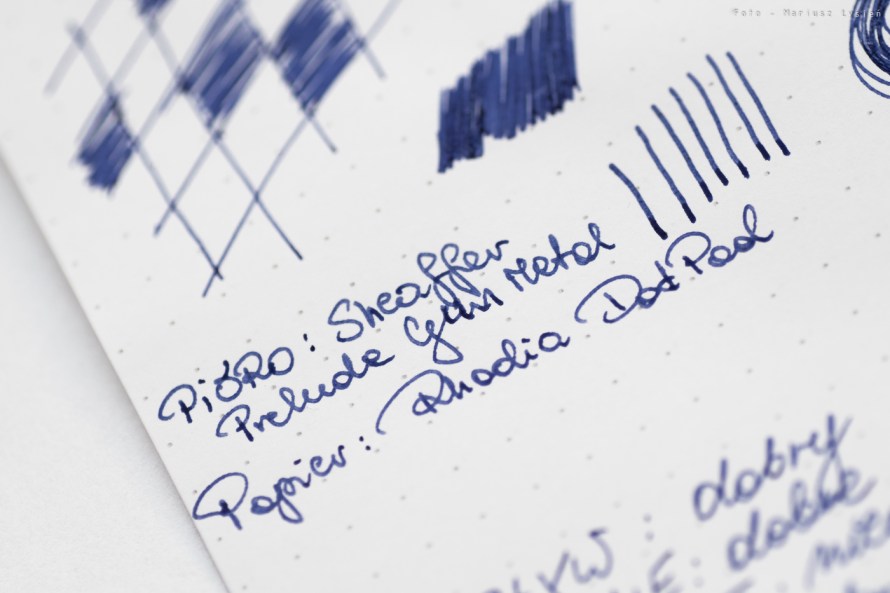 Foto - Mariusz Lysień
PiÓRO: Sheaffer
Prelude Gun Metal
Papier: Rhodia DotPad
dobry
dobre